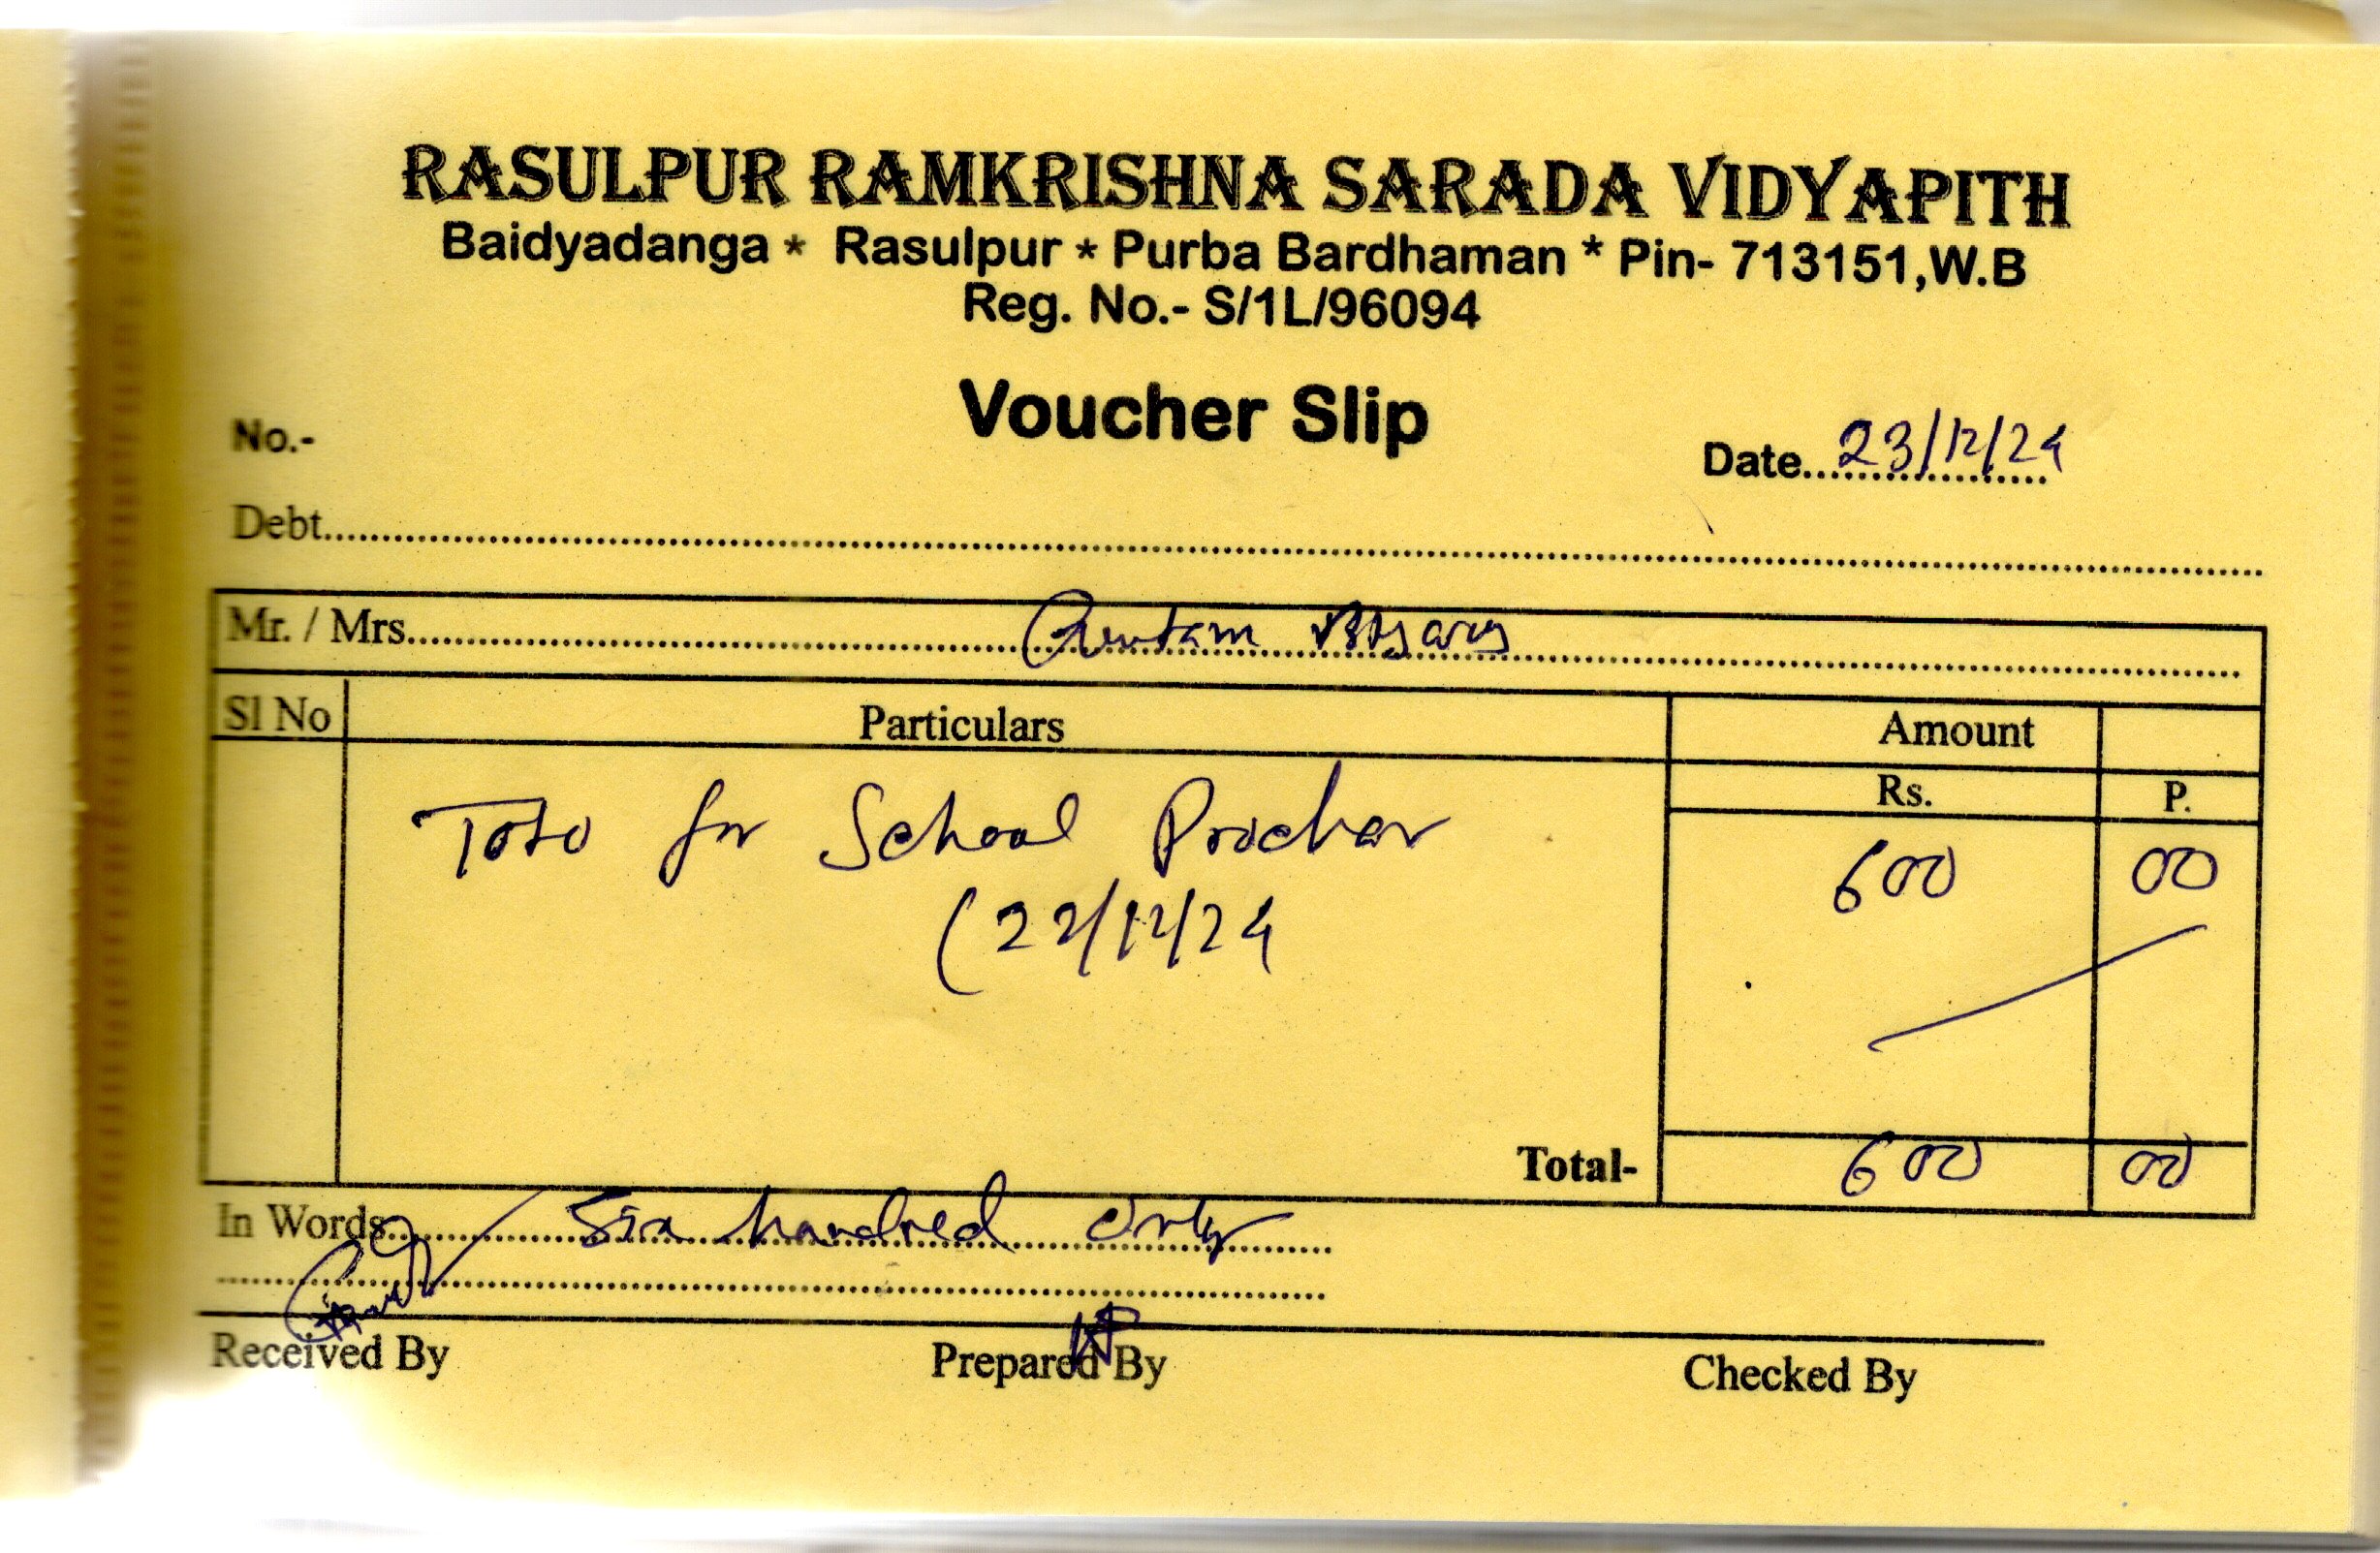 RASULPUR RAMKRISHNA SARADA VIDYAPITH
Baidyadanga * Rasulpur * Purba Bardhaman * Pin- 713151,W.B
Reg. No.- S/1L/96094
Voucher Slip
No.-
Date 23/12/24
Debt
Mr. / Mrs.
Sl No Particulars Amount
Rs. P.
Toto for School Prochar 600 00
(22/12/24
Total- 600 00
In Words Six hundred only
Received By Prepared By Checked By